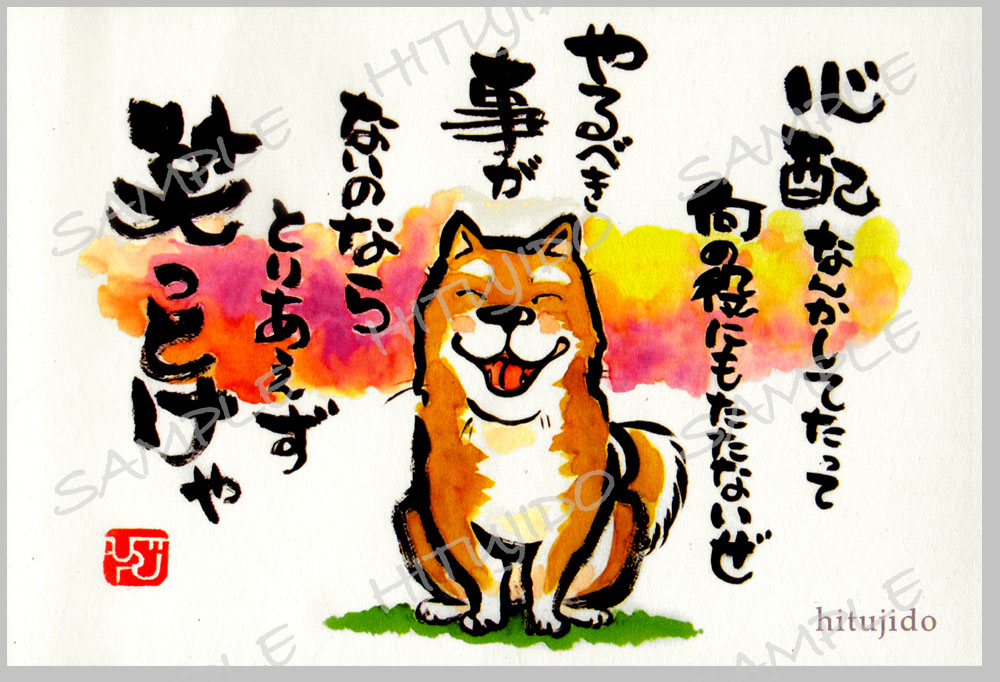 心配なんかしてたって
何の役にもたたないぜ
やるべき
事が
ないのなら
とりあえず
笑っとけや
hitujido
SAMPLE
HITUJIDO
SAMPLE
SAMPLE
HITUJIDO
SAMPLE
SAMPLE
HITUJIDO
SAMPLE
SAMPLE
HITUJIDO
SAMPLE